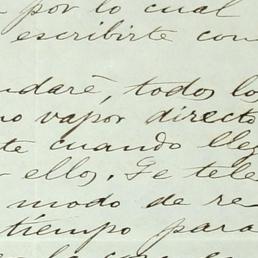 por lo cual
escribirte con
daré, todos lo
vapor directo
te cuando lleg
ellos. Te tele
modo de re
tiempo para